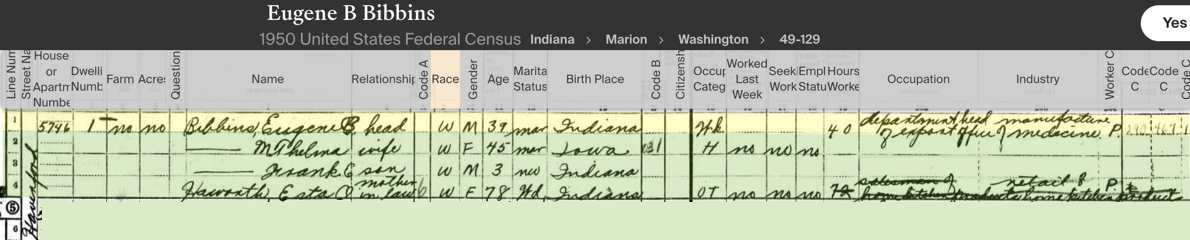 Eugene B Bibbins
Yes
1950 United States Federal Census Indiana > Marion > Washington > 49-129
Line Num Street Na House or Apartm Numbe Dwelli Numb Farm Acres Question Name Relationship Code A Race Gender Age Marita Status Birth Place Code B Citizensh Occup Categ Worked Last Week Seeki Work Empl Statu Hours Worke Occupation Industry Worker C Code C Code C Code C
1 5746 1 no no Bibbins, Eugene B head W M 39 mar Indiana Wk 40 department head of export office manufacture of medicine P
2 — M Thelma wife W F 45 mar Iowa 131 H no no no
3 — Frank E son W M 3 nev Indiana
4 Haworth, Esta O mother in law 6 W F 78 Wd Indiana OT no no no 72 salesman of home kitchen products retail P
5
6